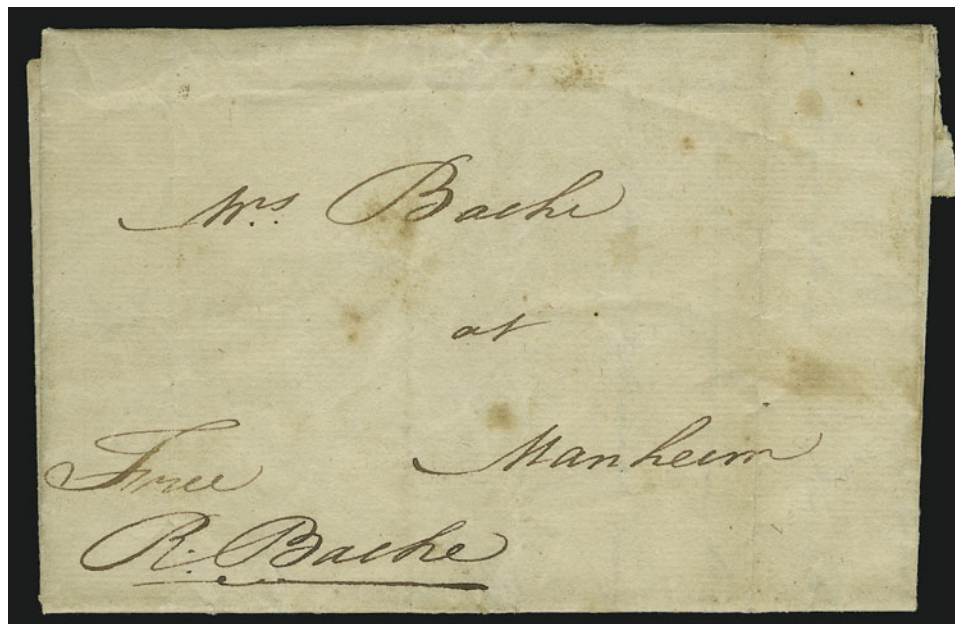 Mrs. Bache
at
Manheim
Free
R. Bache